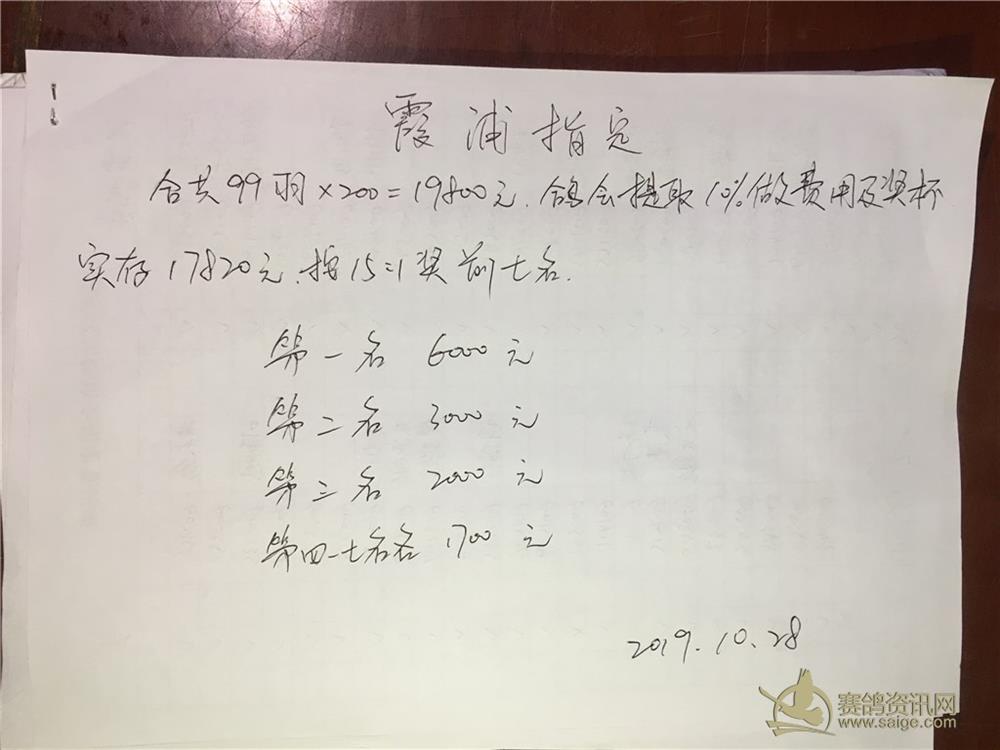 霞浦指定
合共99羽×200=19800元.鸽会提取10%做费用及奖杯
实存17820元.按15:1奖前七名.
第一名 6000元
第二名 3000元
第三名 2000元
第四一七名各 1700元
2019.10.28
赛鸽资讯网
www.saige.com